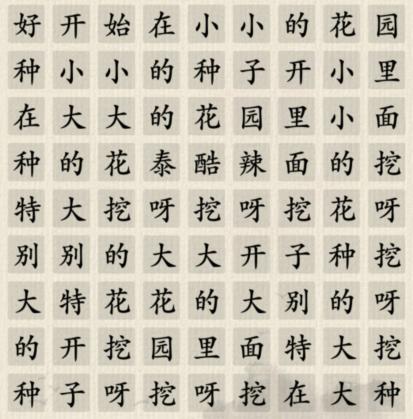 好开始在小小的花园
种小小的种子开小里
在大大的花园里小面
种的花泰酷辣面的挖
特大挖呀挖呀挖花呀
别别的大大开子种挖
大特花花的大别的呀
的开挖园里面特大挖
种子呀挖呀挖在大种